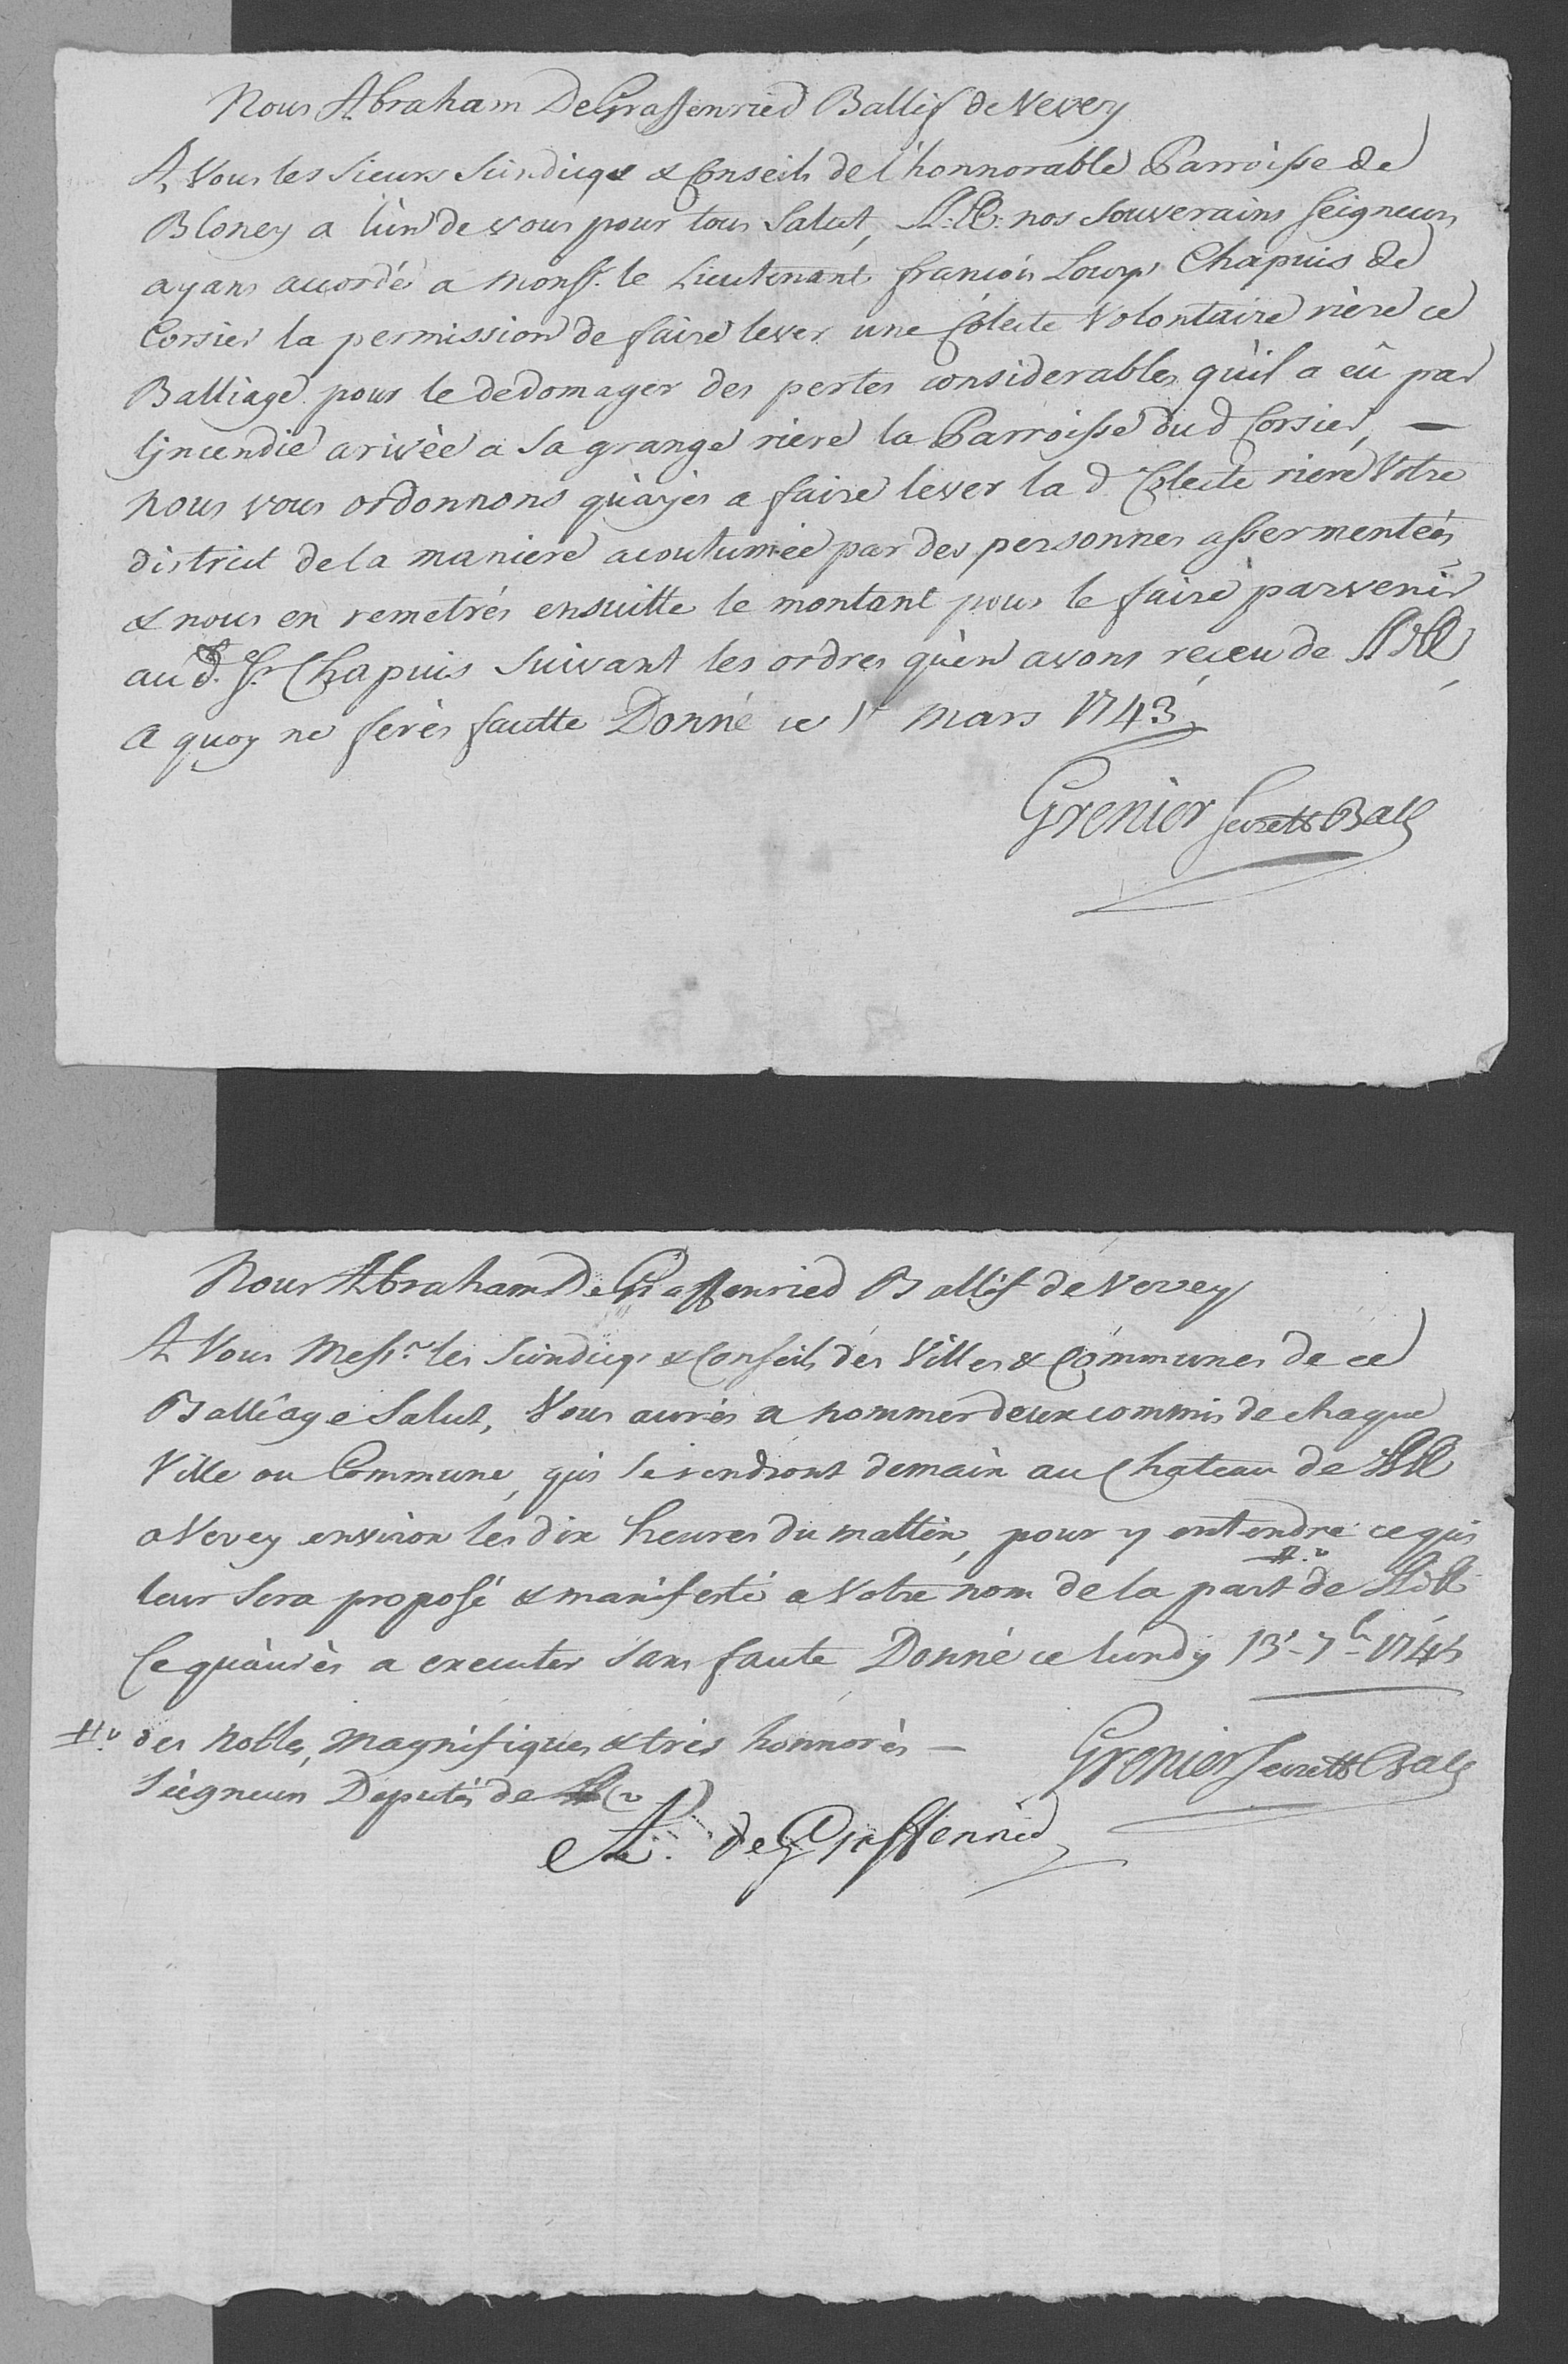 Nous Abraham DeGraffenried Ballif de Vevey
A Vous les Sieurs Sindiqs & Conseils de l'honnorable Parroisse de
Bloney a l'ùn de vous pour tous Salut, LL.EE. nos Souverains Seigneurs
ayans accordé a Monsr. le Lieutenant françois Louys Chapuis de
Corsier la permission de faire lever une Colecte Volontaire rière ce
Balliage pour le dedomager des pertes considerables qu'il a eû par
l'jncendie arivèe a Sa grange riere la Parroisse dud Corsier, —
nous vous ordonnons qu'ayés a faire lever la d. Colecte riere Votre
district de la maniere acoutumée par des personnes assermenteés
& nous en remetrés ensuitte le montant pour le faire parvenir
au d. Sr. Chapuis Suivant les ordres qu'en avons réçeu de LL.EE.
A quoy ne ferés fautte Donné ce 1r Mars 1743
Grenier Secrett Ball
Nous Abraham De Graffenried Ballif de Vevey
A Vous Messrs les Sindiqs & Conseils des Villes & Communes de ce
Balliage Salut, Vous aurés a nommer deux commis de chaque
Ville ou Commune, qui Se rendront demain au Chateau de LL.EE.
a Vevey environ les dix heures du mattin, pour y entendre ce qui
#.
leur Sera proposé & manifesté a Votre nom de la part de LL.EE.
Ce qu'aurés a executer Sans faute Donné ce lundy 13e 7b 1745
#. des Nobles, Magnifiques & tres honnorés —
Seigneurs Deputés de
Grenier Secrett Ball
A. de Graffenried